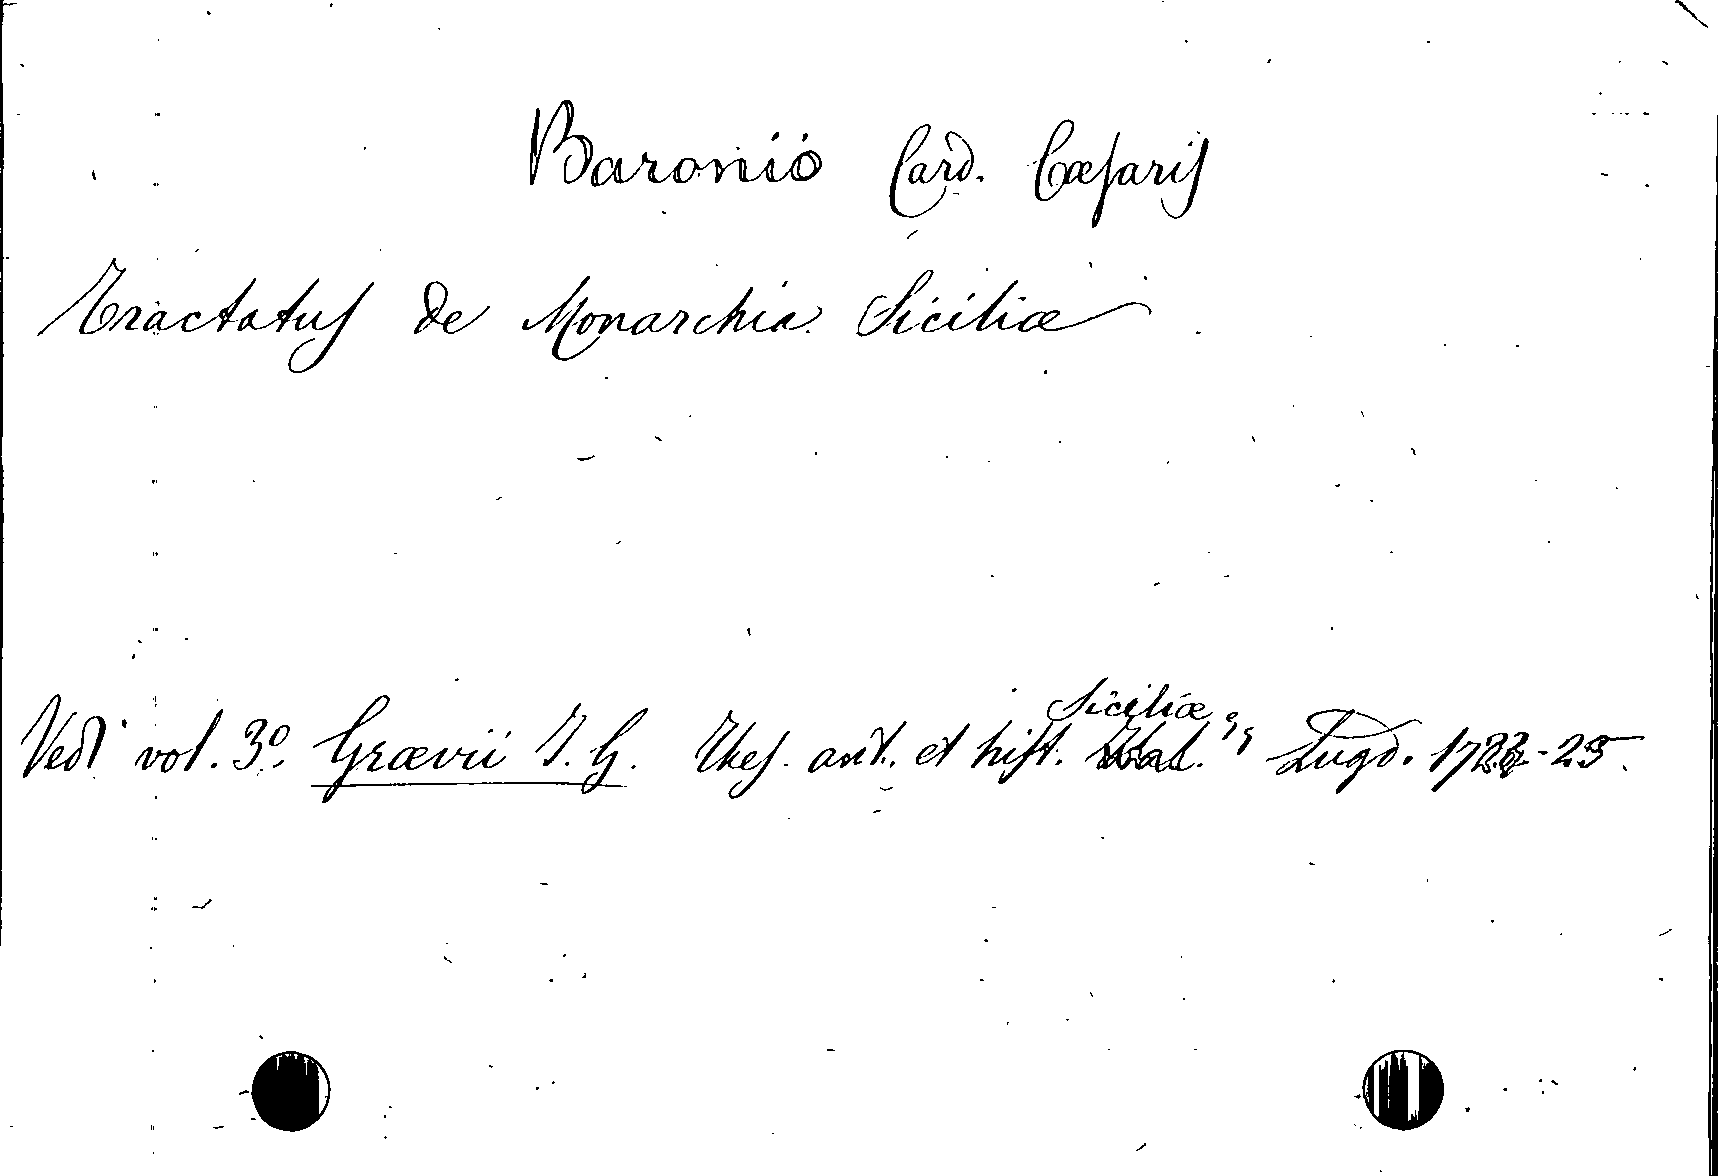 Baronio Card. Cæsaris
Tractatus de Monarchia Siciliæ
Siciliæ
Vedi vol. 3º. Grævii J. G. Thes. ant. et hist. Ital. Lugd. 1723-25.